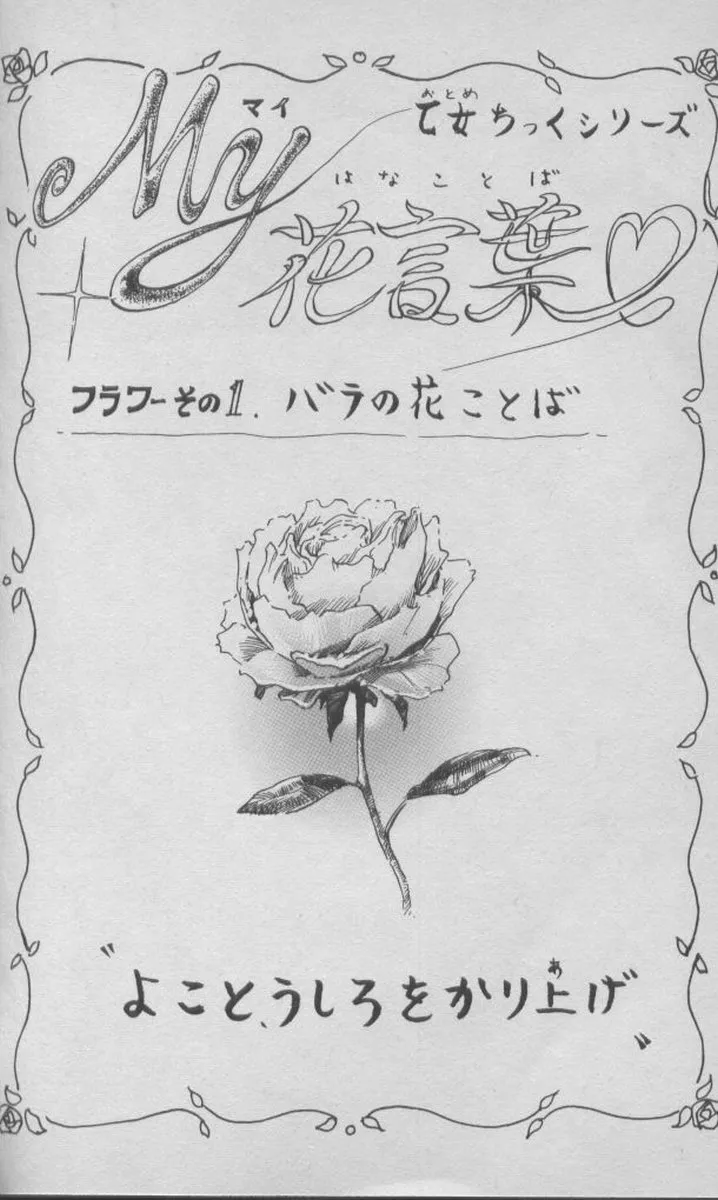 乙女ちっくシリーズ
おとめ
My
マイ
花言葉♡
はなことば
フラワーその1. バラの花ことば
"よこと、うしろをかり上げ"
あ